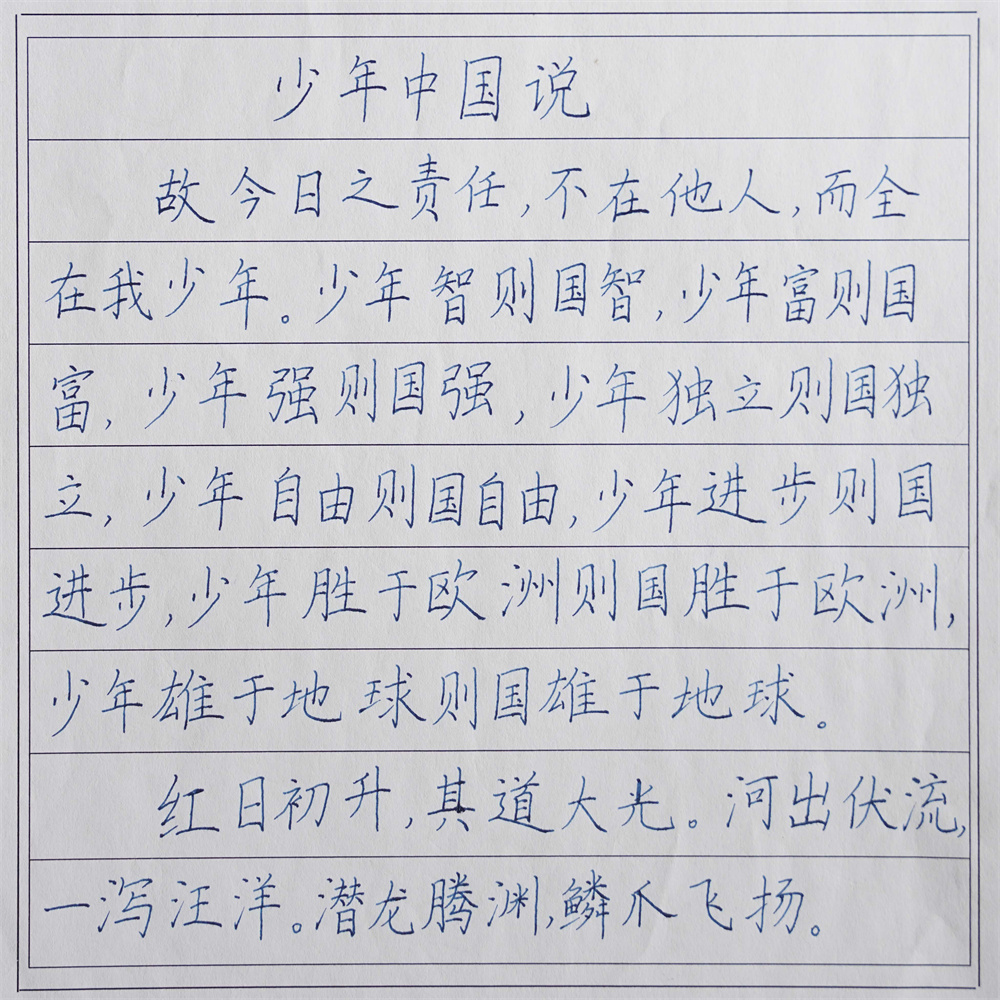 少年中国说
故今日之责任,不在他人,而全
在我少年。少年智则国智,少年富则国
富,少年强则国强,少年独立则国独
立,少年自由则国自由,少年进步则国
进步,少年胜于欧洲则国胜于欧洲,
少年雄于地球则国雄于地球。
红日初升,其道大光。河出伏流,
一泻汪洋。潜龙腾渊,鳞爪飞扬。